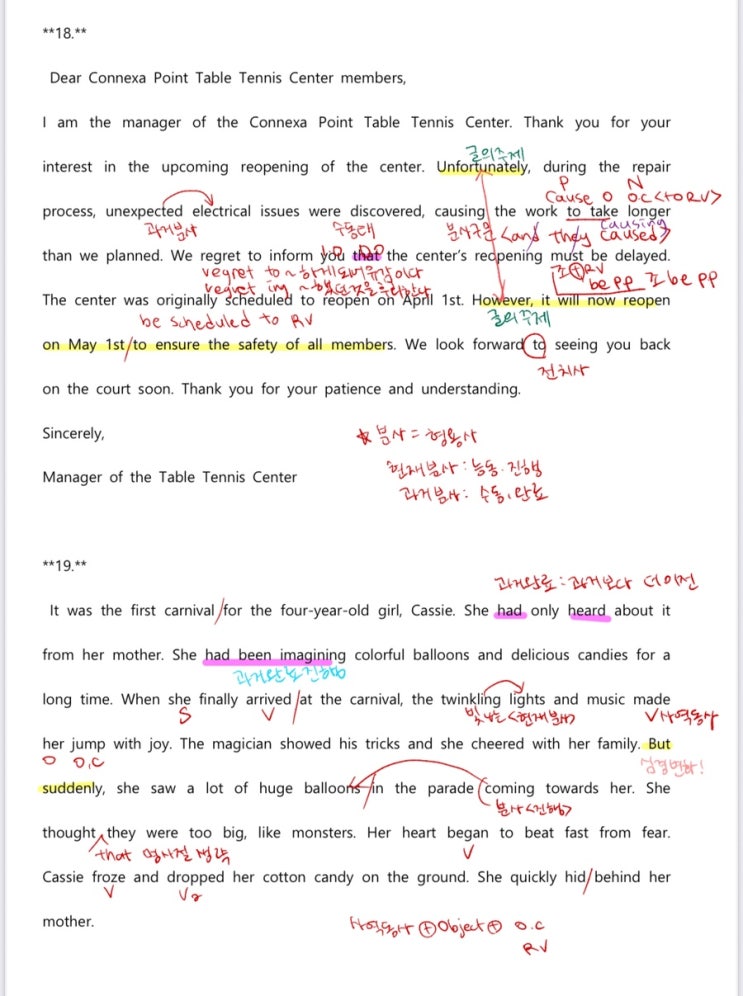 **18.**
Dear Connexa Point Table Tennis Center members,
I am the manager of the Connexa Point Table Tennis Center. Thank you for your
글의주제
interest in the upcoming reopening of the center. Unfortunately, during the repair
P N
Cause O OC<to RV>
process, unexpected electrical issues were discovered, causing the work to take longer
과거분사 수동태 분사구문 <and they caused> causing
than we planned. We regret to inform you that the center's reopening must be delayed.
IO DO
regret to ~하게되어유감이다
조+RV
be pp 조 be pp
regret ing ~했던것을후회한다
The center was originally scheduled to reopen on April 1st. However, it will now reopen
be scheduled to RV
글의주제
on May 1st/to ensure the safety of all members. We look forward to seeing you back
전치사
on the court soon. Thank you for your patience and understanding.
Sincerely,
★ 분사 = 형용사
Manager of the Table Tennis Center
현재분사 : 능동·진행
과거분사 : 수동, 완료
**19.**
과거완료 : 과거보다 더이전
It was the first carnival/for the four-year-old girl, Cassie. She had only heard about it
from her mother. She had been imagining colorful balloons and delicious candies for a
과거완료진행형
long time. When she finally arrived/at the carnival, the twinkling lights and music made
S V 빛나는<현재분사> V사역동사
her jump with joy. The magician showed his tricks and she cheered with her family. But
O O.C 심경변화!
suddenly, she saw a lot of huge balloons/in the parade (coming towards her. She
분사<진행>
thought they were too big, like monsters. Her heart began to beat fast from fear.
that 명사절 생략 V
Cassie froze and dropped her cotton candy on the ground. She quickly hid/behind her
V V2
mother.
사역동사 + Object + O.C
RV